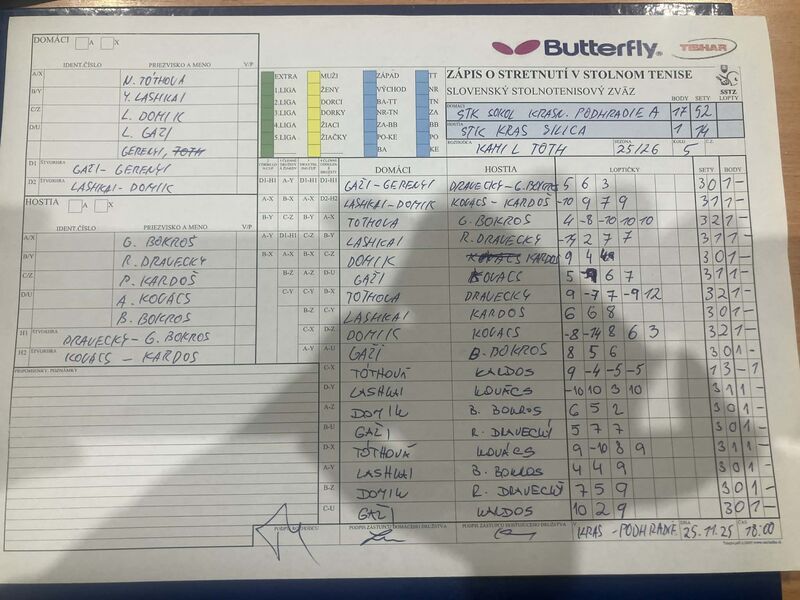 DOMÁCI A X
IDENT.ČÍSLO PRIEZVISKO A MENO V/P
A/X N. TÓTHOVA
B/Y Y. LASHKAI
C/Z L. DOMIK
D/U L. GAŽI
GERENYI, TOTH
D1 ŠTVORHRA GAŽI - GERENYI
D2 LASHKAI - DOMIK
HOSTIA A X
IDENT.ČÍSLO PRIEZVISKO A MENO V/P
A/X G. BOKROŠ
B/Y R. DRAVECKY
C/Z P. KARDOŠ
D/U A. KOVACS
B. BOKROS
H1 ŠTVORHRA DRAVECKY - G. BOKROS
H2 ŠTVORHRA KOVACS - KARDOS
PRIPOMIENKY, POZNÁMKY
Butterfly TIBHAR
EXTRA MUŽI ZÁPAD TT
1.LIGA ŽENY VÝCHOD NR
2.LIGA DORCI BA-TT TN
3.LIGA DORKY NR-TN ZA
4.LIGA ŽIACI ZA-BB BB
5.LIGA ŽIAČKY PO-KE PO
BA KE
ZÁPIS O STRETNUTÍ V STOLNOM TENISE
SLOVENSKÝ STOLNOTENISOVÝ ZVÄZ SSTZ
DOMÁCI STK SOKOL KRASN. PODHRADIE A BODY 17 SETY 52 LOPTY
HOSTIA STK KRAS SILICA 1 14
ROZHODCA KAMIL TOTH SEZÓNA 25/26 KOLO 5 Č.Z.
DOMÁCI HOSTIA LOPTIČKY SETY BODY
D1-H1 A-Y D1-H1 D1-H1 GAŽI - GERENYI DRAVECKY - G. BOKROS 5 6 3 3 0 1 -
A-X B-X A-X D2-H2 LASHKAI - DOMIK KOVACS - KARDOS -10 9 7 9 3 1 1 -
B-Y C-Z B-Y A-X TÓTHOVA G. BOKROS 4 -8 -10 10 10 3 2 1 -
A-Y D1-H1 C-Z B-Y LASHKAI R. DRAVECKY -14 2 7 7 3 1 1 -
B-X A-X B-X C-Z DOMIK KARDOS 9 4 3 0 1 -
B-Z A-Z D-U GAŽI KOVACS 5 6 7 3 1 1 -
C-Y C-Y B-X TÓTHOVA DRAVECKY 9 -7 7 -9 12 3 2 1 -
B-Z C-Y LASHKAI KARDOS 6 6 8 3 0 1 -
C-X D-Z DOMIK KOVACS -8 -14 8 6 3 3 2 1 -
A-Y A-U GAŽI B. BOKROŠ 8 5 6 3 0 1 -
C-X TÓTHOVÁ KALDOS 9 -4 -5 -5 1 3 - 1
D-Y LASHKAI KOVÁCS -10 10 3 10 3 1 1 -
A-Z DOMIK B. BOKROS 6 5 2 3 0 1 -
B-U GAŽI R. DRAVECKÝ 5 7 7 3 0 1 -
D-X TÓTHOVÁ KOVÁCS 9 -10 8 9 3 1 1 -
A-Y LASHKAI B. BOKROS 4 4 9 3 0 1 -
B-Z DOMIK R. DRAVECKÝ 7 5 9 3 0 1 -
C-U GAŽI KALDOS 10 2 9 3 0 1 -
PODPIS ROZHODCU PODPIS ZÁSTUPCU DOMÁCEHO DRUŽSTVA PODPIS ZÁSTUPCU HOSŤUJÚCEHO DRUŽSTVA V KRÁS - PODHRADIE DŇA 25.11.25 ČAS 18:00